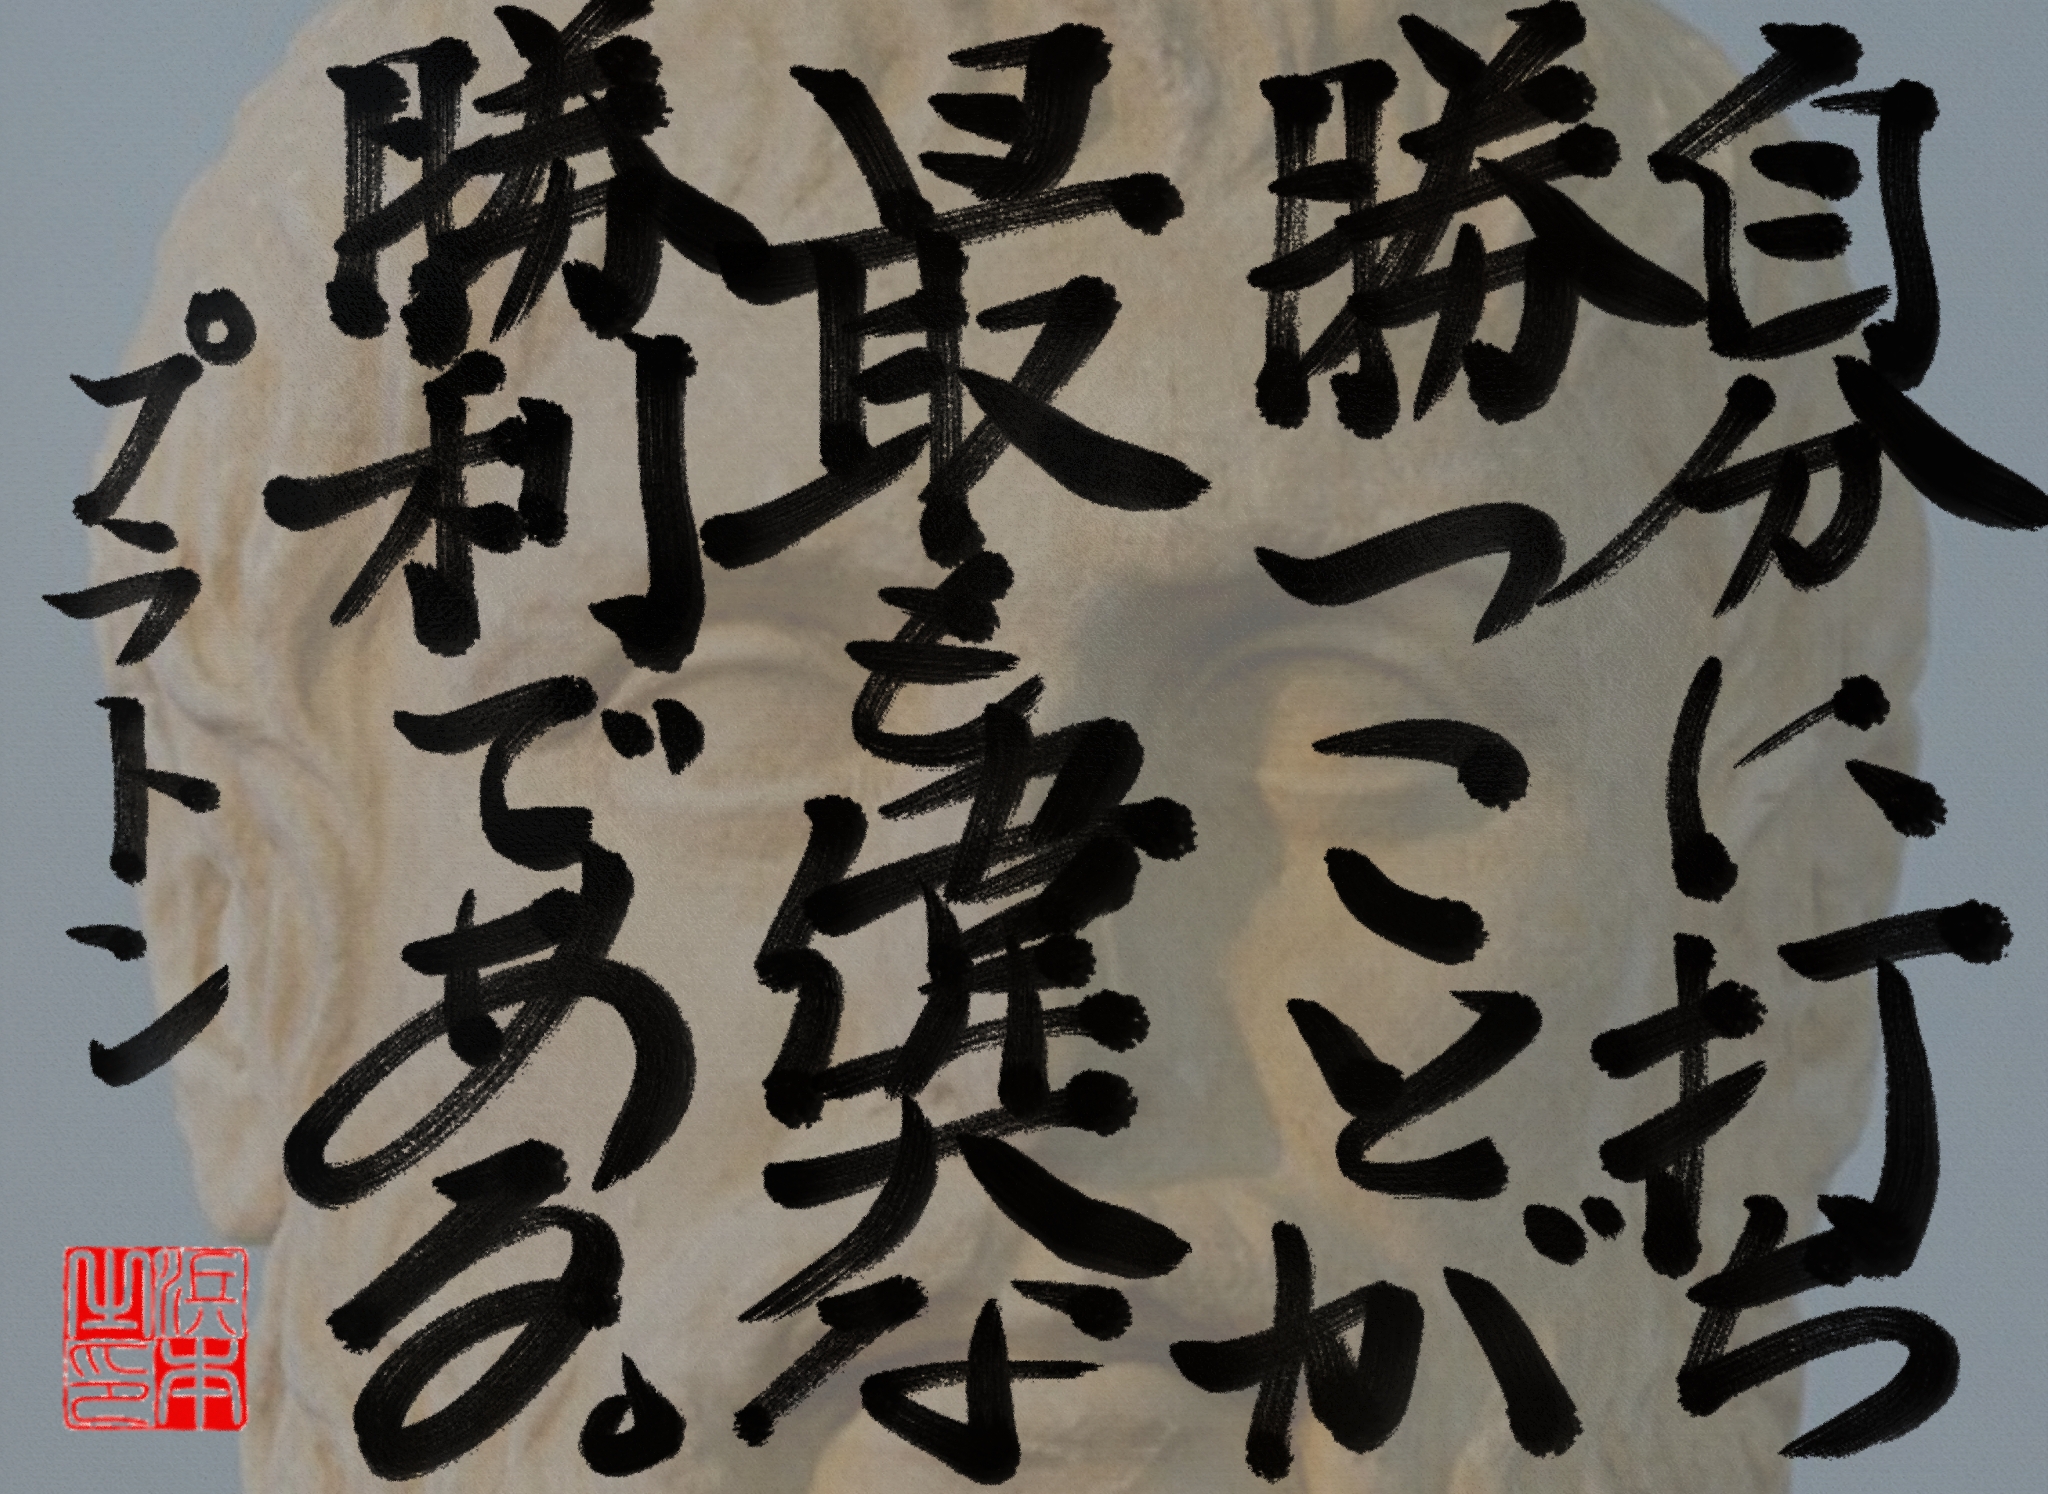 自分に打ち
勝つことが
最も偉大な
勝利である。
プラトン
浜本
之印